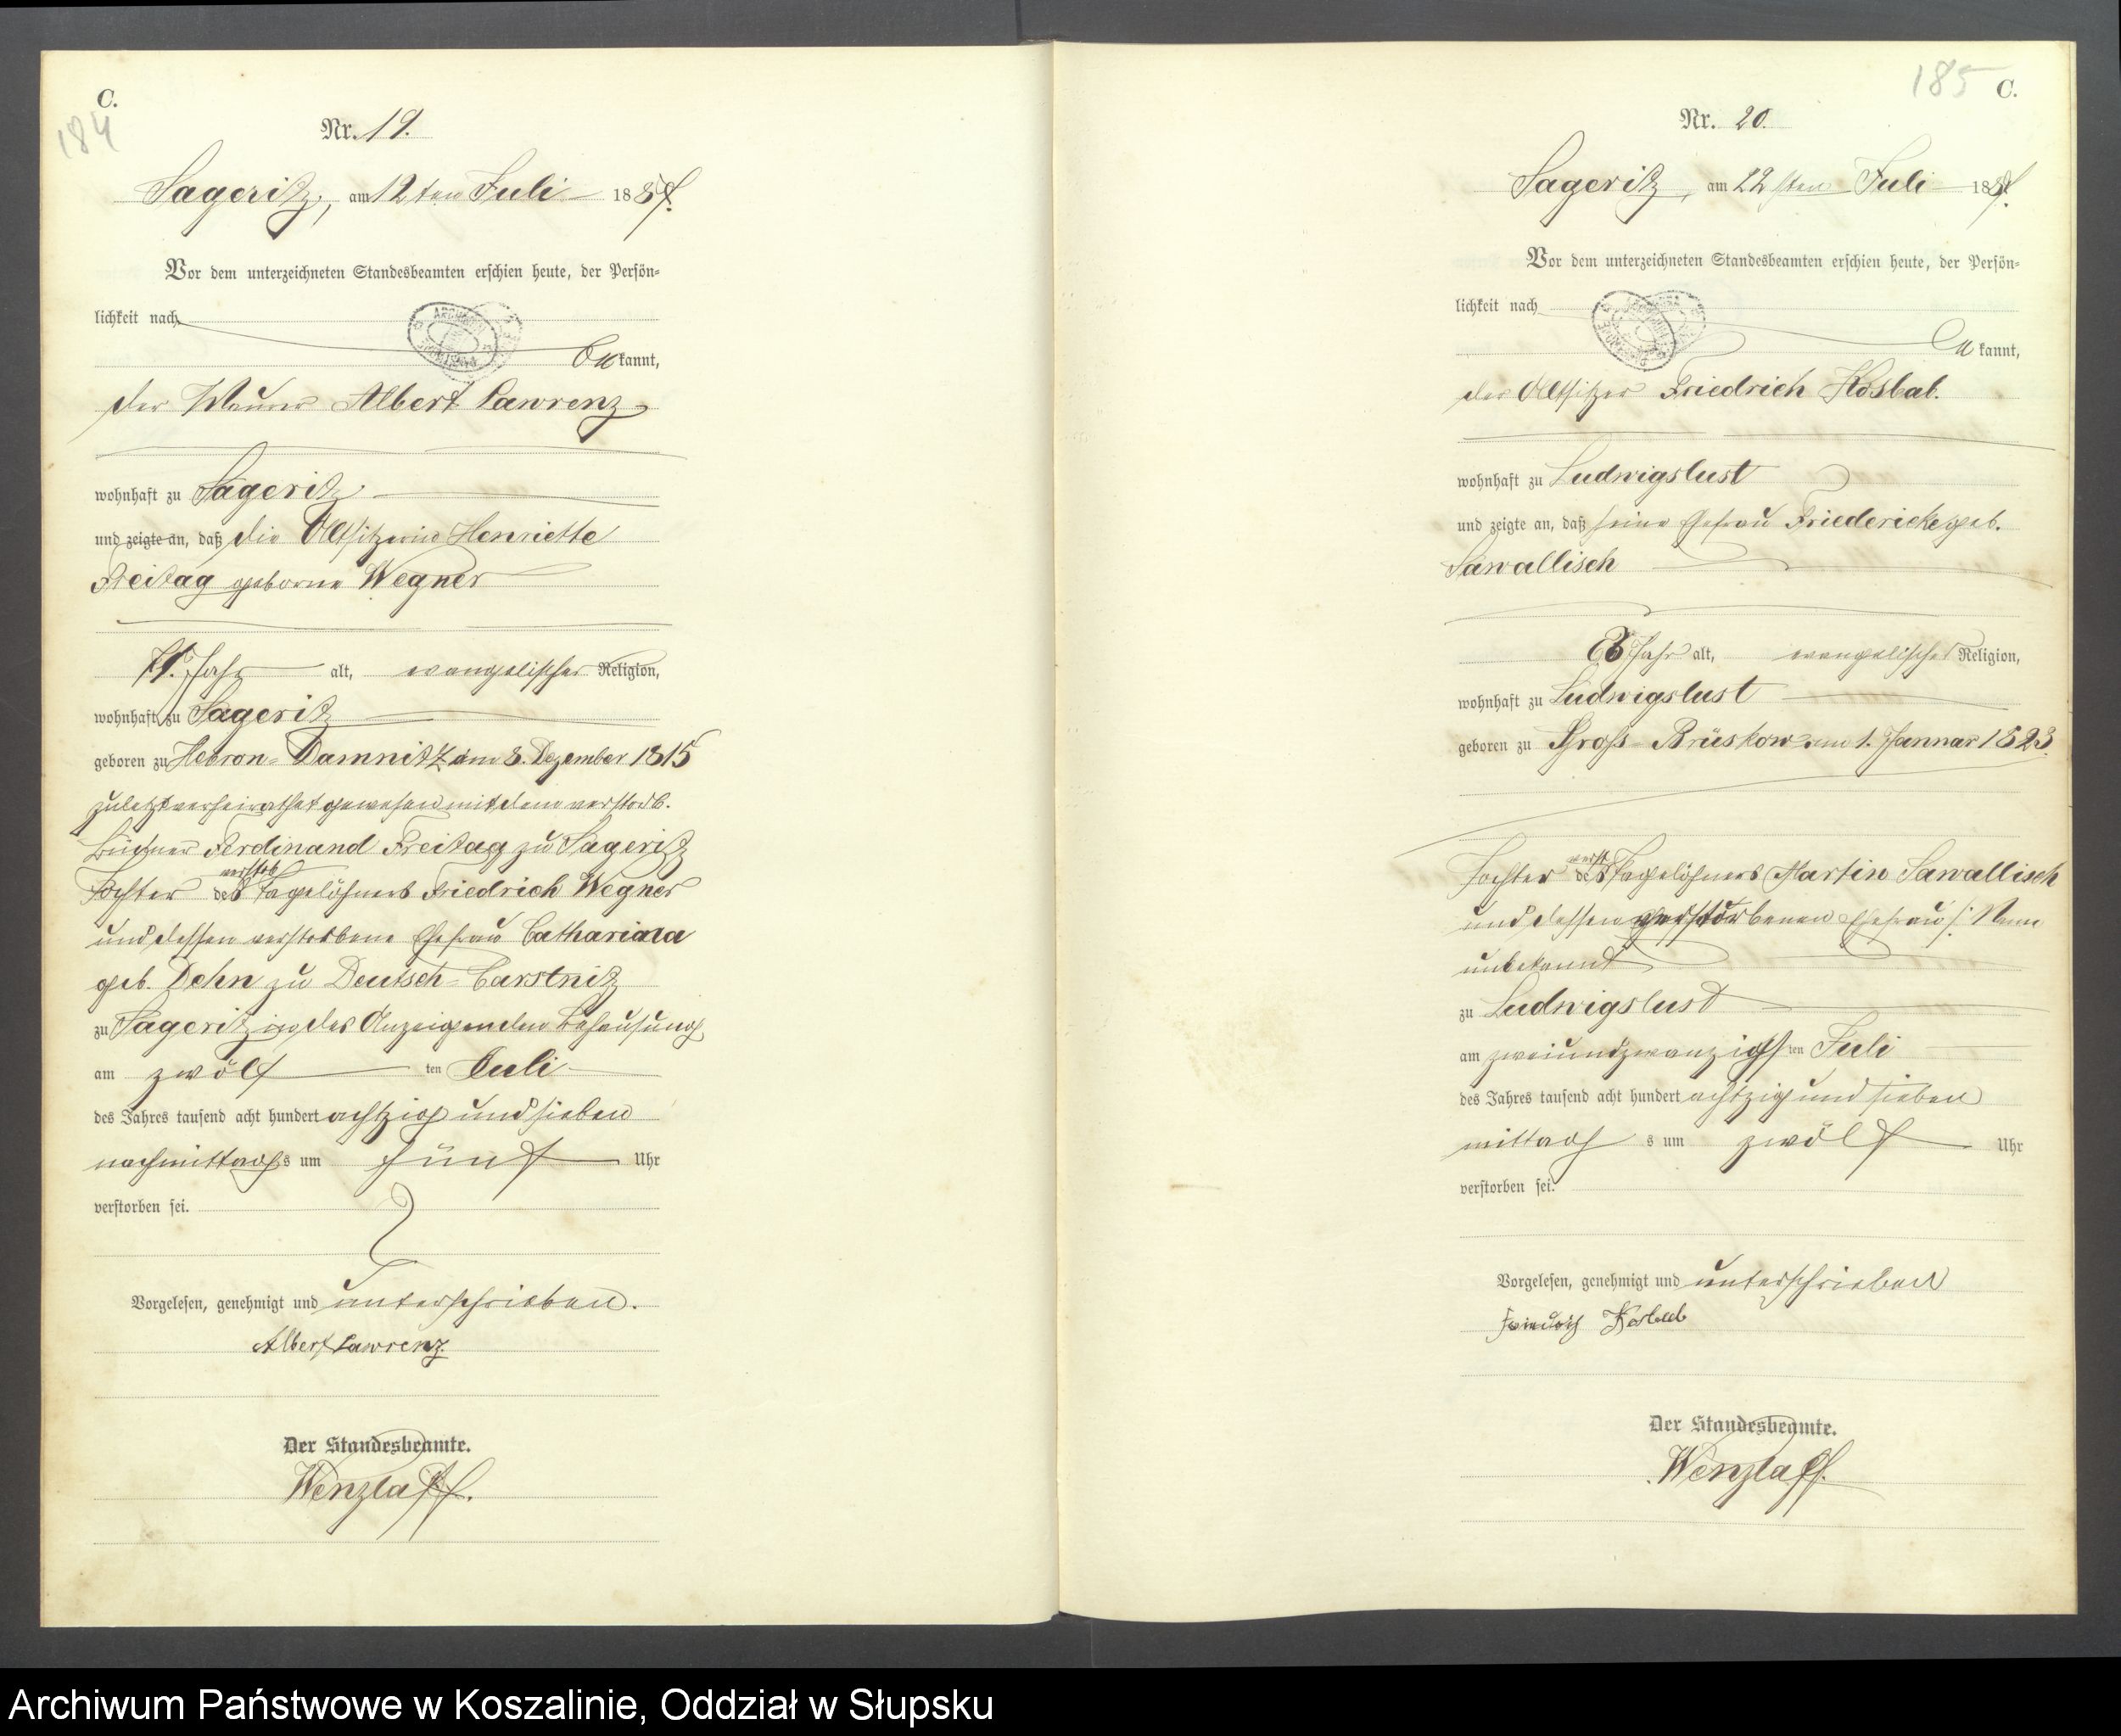 C.
184
Nr. 19.
Sageritz, am 12ten Juli 1887.
Vor dem unterzeichneten Standesbeamten erschien heute, der Persön=
lichkeit nach
bekannt,
der Maurer Albert Lawrenz
wohnhaft zu Sageritz
und zeigte an, daß die Altsitzerin Henriette
Freitag geborne Wegner
71 Jahr alt, evangelischer Religion,
wohnhaft zu Sageritz
geboren zu Hebron-Damnitz am 8. Dezember 1815
zuletzt verheirathet gewesen mit dem verstorb.
Büdner Ferdinand Freitag zu Sageritz
verstob
Tochter des Tagelöhners Friedrich Wegner
und dessen verstorbene Ehefrau Catharina
geb. Dehn zu Deutsch-Carstnitz
zu Sageritz in des Anzeigenden Behausung
am zwölf ten Juli
des Jahres tausend acht hundert achtzig und sieben
nachmittags um fünf Uhr
verstorben sei.
Vorgelesen, genehmigt und unterschrieben.
Albert Lawrenz.
Der Standesbeamte.
Wenzlaff.
185 C.
Nr. 20.
Sageritz, am 22sten Juli 1887.
Vor dem unterzeichneten Standesbeamten erschien heute, der Persön=
lichkeit nach
bekannt,
der Altsitzer Friedrich Kosbab.
wohnhaft zu Ludwigslust
und zeigte an, daß seine Ehefrau Friedericke geb.
Sawallisch
Jahr alt, evangelischer Religion,
wohnhaft zu Ludwigslust
geboren zu Gross-Brüskow am 1. Januar 1823.
verst
Tochter des Tagelöhners Martin Sawallisch
und dessen verstorbenen Ehefrau /: Name
unbekannt
zu Ludwigslust
am zweiundzwanzigsten Juli
des Jahres tausend acht hundert achtzig und sieben
mittags um zwölf Uhr
verstorben sei.
Vorgelesen, genehmigt und unterschrieben
Friedrich Kosbab
Der Standesbeamte.
Wenzlaff.
Archiwum Państwowe w Koszalinie, Oddział w Słupsku